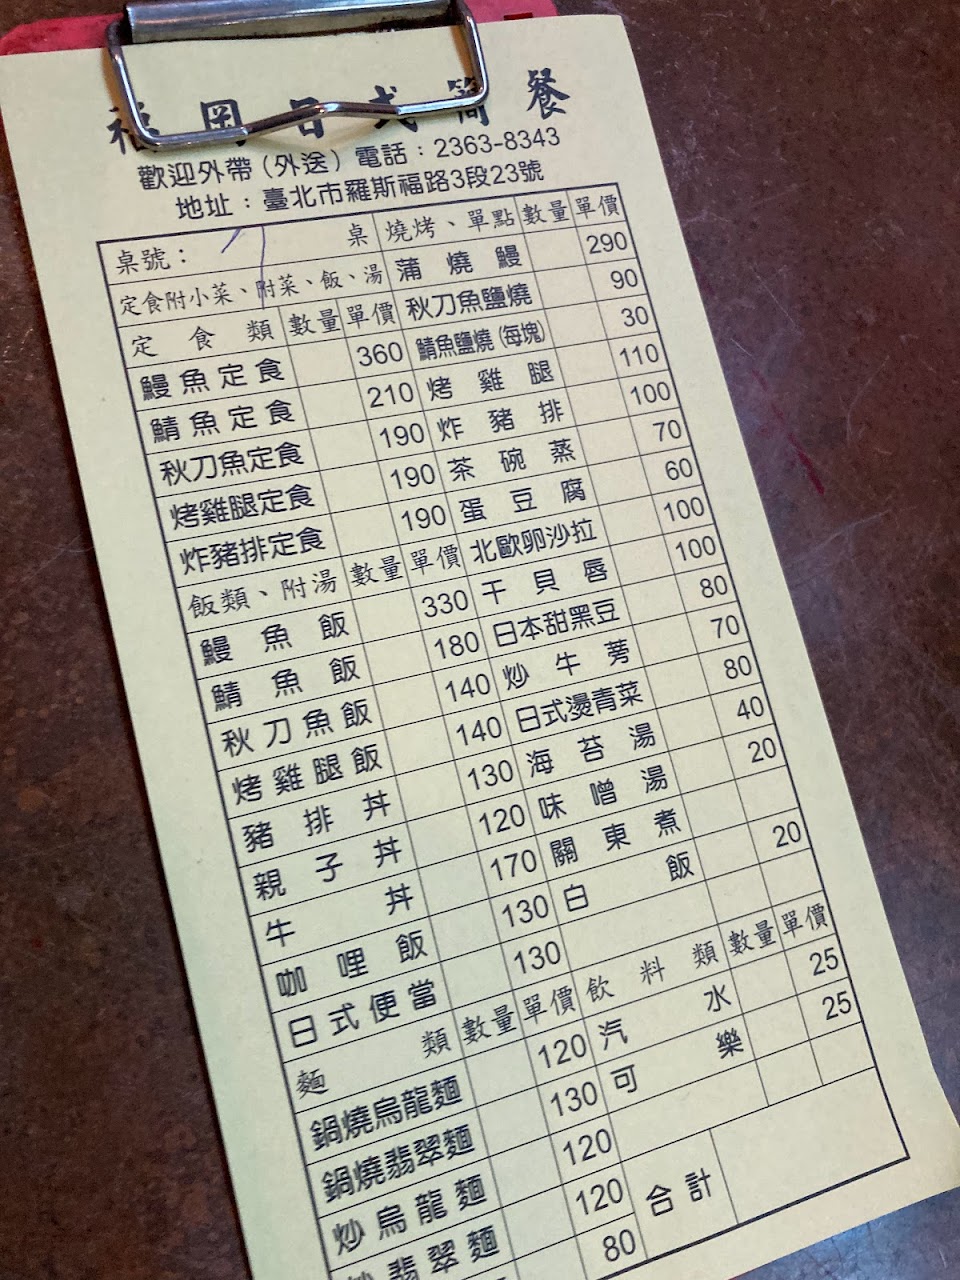 福岡日式簡餐
歡迎外帶（外送）電話：2363-8343
地址：臺北市羅斯福路3段23號
桌號： 桌
定食附小菜、附菜、飯、湯
定食類 數量 單價
鰻魚定食 360
鯖魚定食 210
秋刀魚定食 190
烤雞腿定食 190
炸豬排定食 190
飯類、附湯 數量 單價
鰻魚飯 330
鯖魚飯 180
秋刀魚飯 140
烤雞腿飯 140
豬排丼 130
親子丼 120
牛丼 170
咖哩飯 130
日式便當 130
麵類 數量 單價
鍋燒烏龍麵 120
鍋燒翡翠麵 130
炒烏龍麵 120
炒翡翠麵 120
80
燒烤、單點 數量 單價
蒲燒鰻 290
秋刀魚鹽燒 90
鯖魚鹽燒(每塊) 30
烤雞腿 110
炸豬排 100
茶碗蒸 70
蛋豆腐 60
北歐卵沙拉 100
干貝唇 100
日本甜黑豆 80
炒牛蒡 70
日式燙青菜 80
海苔湯 40
味噌湯 20
關東煮
白飯 20
飲料類 數量 單價
汽水 25
可樂 25
合計